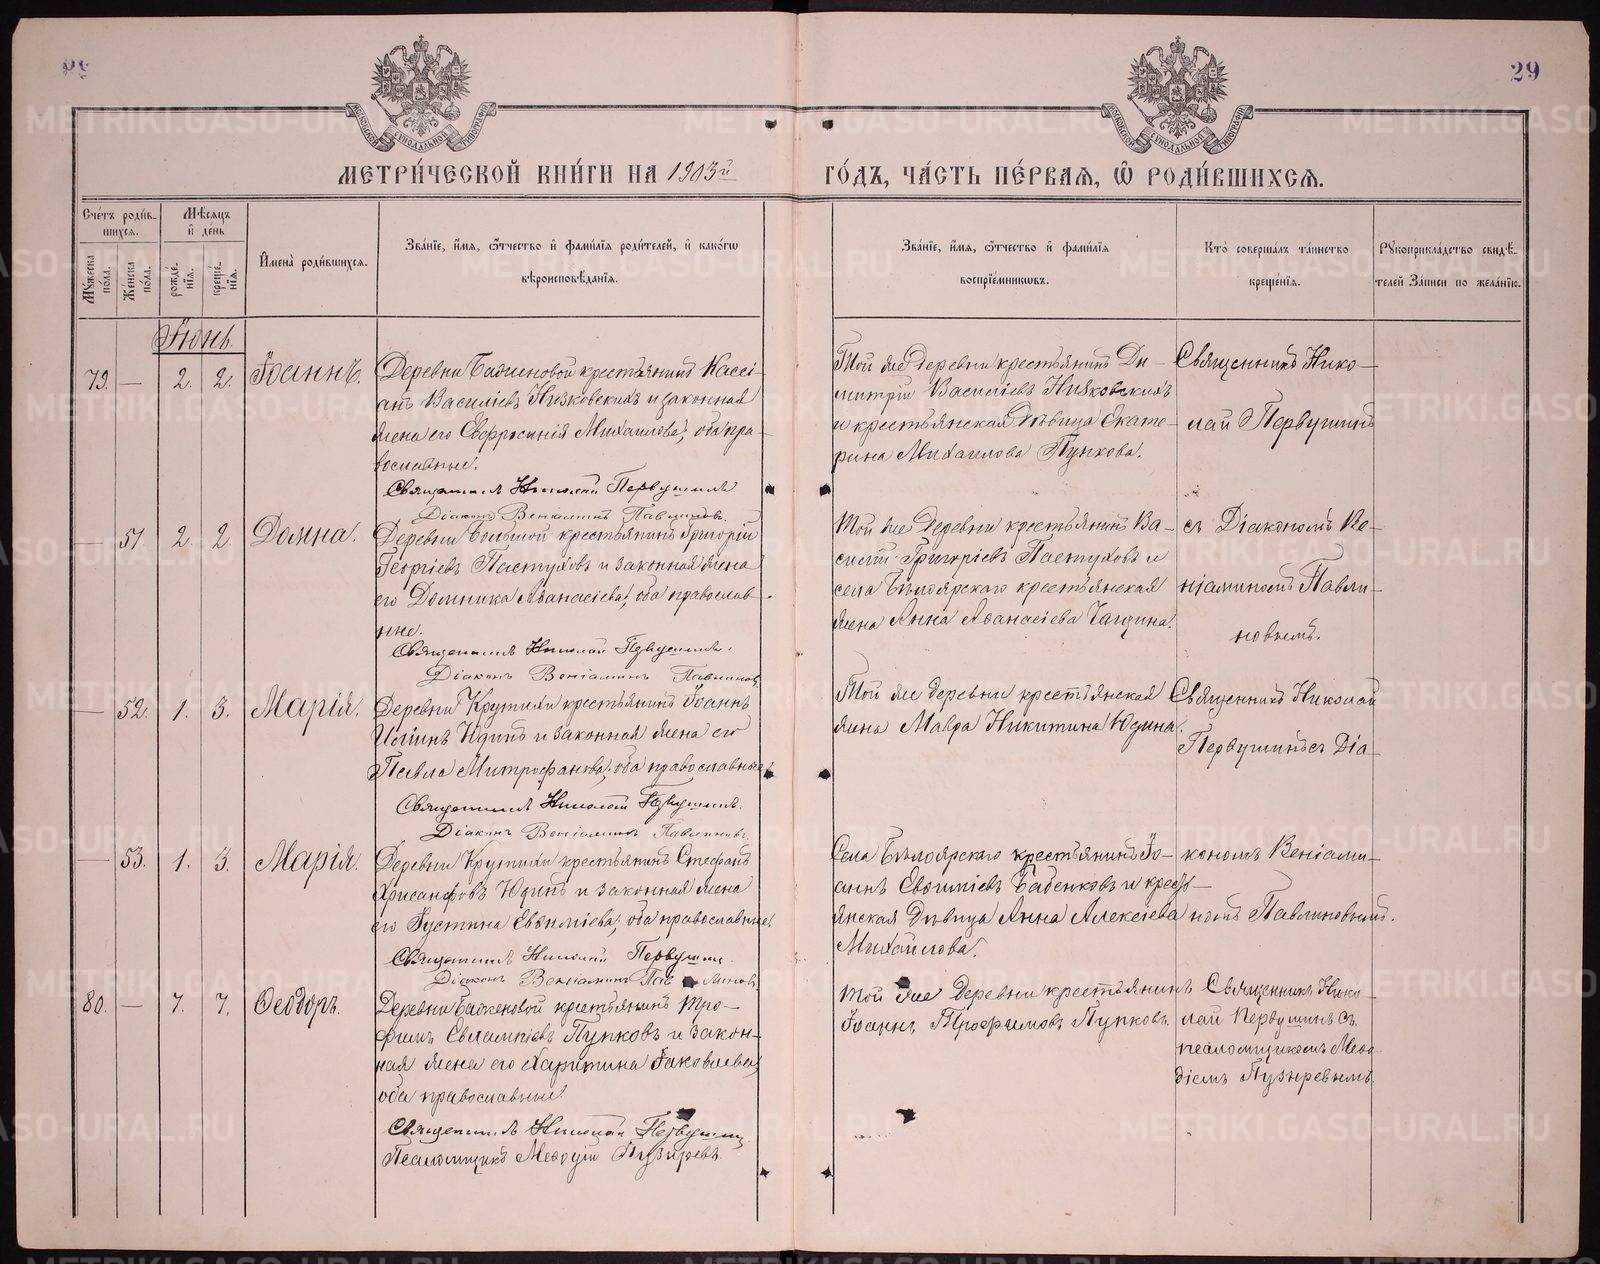 29
МЕТРИ́ЧЕСКОЙ КНИ́ГИ НА 1903й ГО́ДЪ, ЧА́СТЬ ПЕ́РВАѦ, Ѽ РОДИ́ВШИХСѦ.
Сче́тъ роди́в-
шихсѧ.
Му́жеска по́ла.
Же́нска по́ла.
Мѣ́сѧцъ и҆ де́нь
рожде́-
нїѧ.
креще́-
нїѧ.
И҆мена̀ роди́вшихсѧ.
Зва́нїе, и҆́мѧ, ѻ҆́тчество и҆ фами́лїѧ роди́телей, и҆ како́гѡ
вѣроисповѣ́данїѧ.
Зва́нїе, и҆́мѧ, ѻ҆́тчество и҆ фами́лїѧ
воспрїе́мникѡвъ.
Кто̀ соверша́лъ та́инство
креще́нїѧ.
Рꙋкоприкла́дство свидѣ́-
телей За́писи по жела́нїю.
Іюнь.
79. — 2. 2. Іоаннъ.
Деревни Баженовой крестьянинъ Кассі-
анъ Василіевъ Низковскихъ и законная
жена его Евфросинія Михаилова, оба пра-
вославные.
Священникъ Николай Первушинъ
Діаконъ Веніаминъ Павлиновъ.
Той же деревни крестьянинъ Ди-
митрій Василіевъ Низковскихъ
и крестьянская дѣвица Екате-
рина Михаилова Пупкова.
Священникъ Нико-
лай Первушинъ
— 51. 2. 2. Домна.
Деревни Большой крестьянинъ Григорій
Георгіевъ Пастуховъ и законная жена
его Домника Аѳанасіева, оба православ-
ные.
Священникъ Николай Первушинъ.
Діаконъ Веніаминъ Павлиновъ.
Той же деревни крестьянинъ Ва-
силій Григоріевъ Пастуховъ и
села Бѣлоярскаго крестьянская
жена Анна Аѳанасіева
съ Діакономъ Ве-
ніаминомъ Павли-
новымъ.
— 52. 1. 3. Марія.
Деревни Крутихи крестьянинъ Іоаннъ
Иліинъ Юдинъ и законная жена его
Павла Митрофанова, оба православные.
Священникъ Николай Первушинъ.
Діаконъ Веніаминъ Павлиновъ.
Той же деревни крестьянская
жена Мавра Никитина Юдина.
Священникъ Николай
Первушинъ съ Діа-
— 53. 1. 3. Марія.
Деревни Крутихи крестьянинъ Стефанъ
Хрисанфовъ Юдинъ и законная жена
его Іустина Евѳиміева, оба православные.
Священникъ Николай Первушин.
Діаконъ Веніаминъ Павлиновъ.
Села Бѣлоярскаго крестьянинъ Іо-
аннъ Евѳиміевъ Бабенковъ и кресть-
янская дѣвица Анна Алексіева
Михайлова.
кономъ Веніами-
номъ Павлиновымъ.
80. — 7. 7. Ѳеодоръ.
Деревни Баженовой крестьянинъ Тро-
фимъ Евлампіевъ Пупковъ и закон-
ная жена его Харитина Іаковлева,
оба православные.
Священникъ Николай Первушинъ
Псаломщикъ Меѳодій Пузыревъ.
Той же деревни крестьянинъ
Іоаннъ Трофимовъ Пупковъ.
Священникъ Нико-
лай Первушинъ съ
псаломщикомъ Меѳо-
діемъ Пузыревымъ.
METRIKI.GASO-URAL.RU